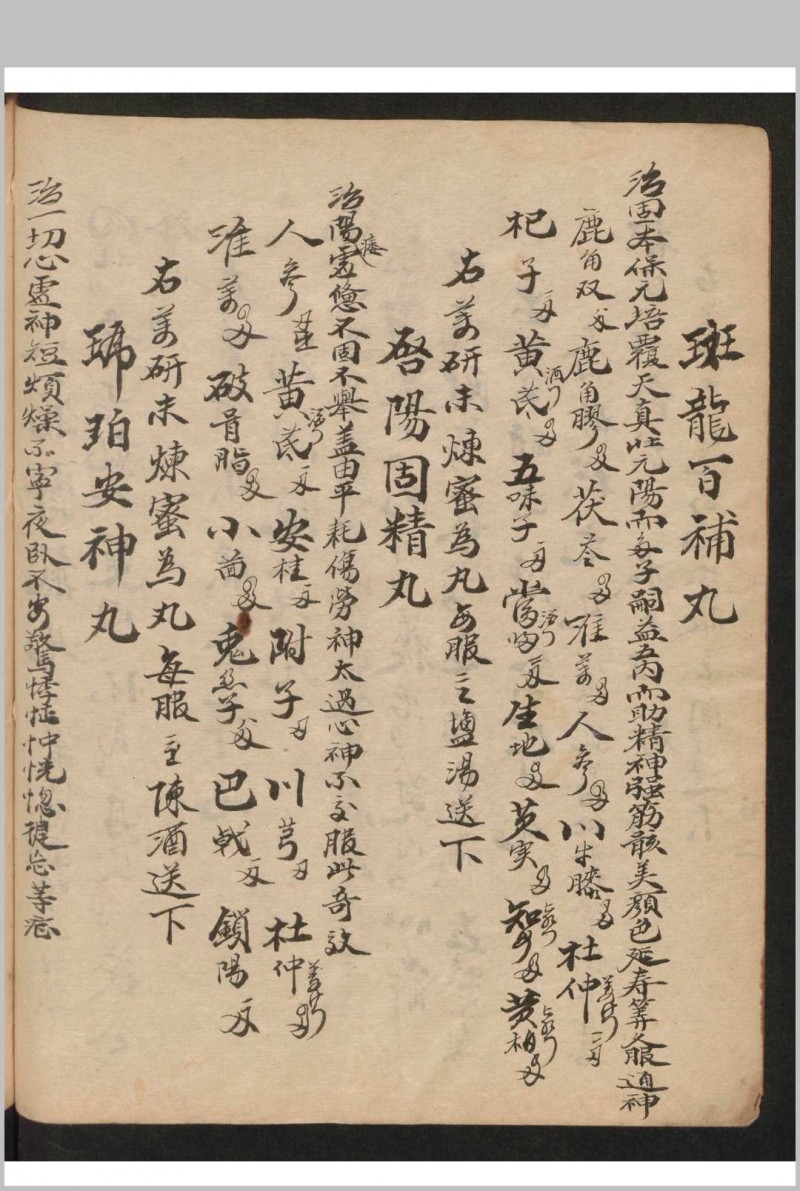 斑龍百補丸
治固本保元培覆天真壯元陽而子嗣益五內而助精神強筋骸美顏色延寿筭久服通神
鹿角双 鹿角膠 茯苓 淮薬 人參 川牛膝 杜仲
杞子 黄茋 酒 五味子 當 酒 生地 芡実 知 黄柏
右薬研末煉蜜為丸每服三盐湯送下
啓陽固精丸
治陽痿虛憊不固不舉盖由平耗傷勞神太過心神不交服此奇效
人參 黄茋 安桂 附子 川芎 杜仲
淮薬 破骨脂 小茴 兎絲子 巴戟 鎖陽
右薬研末煉蜜為丸每服 陳酒送下
琥珀安神丸
治一切心虛神短煩燥不寧夜臥不安驚悸怔忡恍惚健忘等症